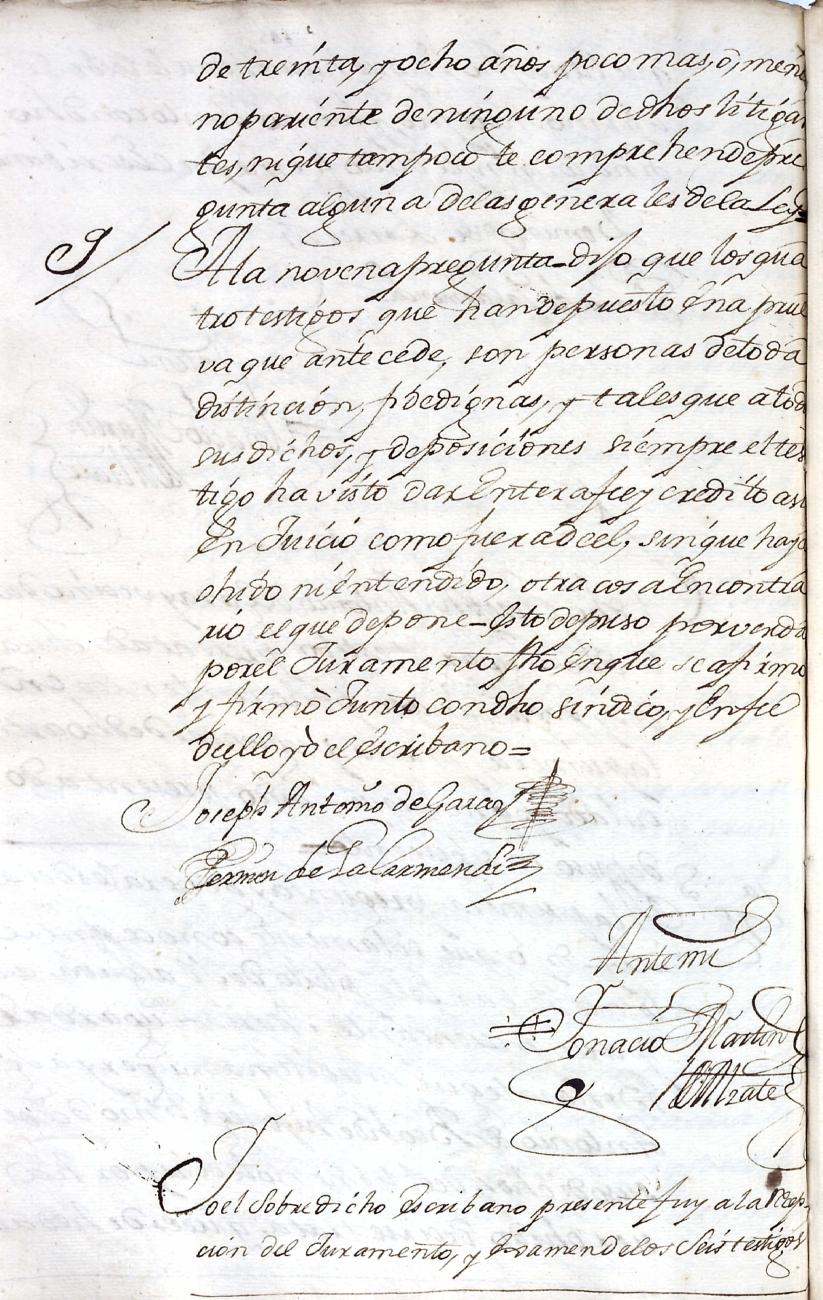 de treinta, y ocho años poco mas, ò, men
no pariente de ninguno de dhos litigan
tes, ni que tampoco le comprehende pre
gunta alguna de las generales de la Ley=
9/ A la novena pregunta - dijo que los qua
tro testigos que han depuesto en la prue
va que antecede, son personas de toda
distincion, fidedignas, y tales que a todo
sus dichos, y deposiciones siempre el tes
tigo ha visto dar Entera fee y credito asi
En Juicio como fuera de el, sin que haya
ohido ni entendido, otra cosa En contra
rio el que depone - Esto depuso por verda
por el Juramento fho En que se afirmo
y firmò Junto con dho sindico, y En fee
de ello yò el escribano =
Joseph Antonio de Garay
Fermin de Galarmendi
Ante mi
Ignacio Martin
Alzate
Yo el Sobre dicho escribano presente fuy a la recep
ción del Juramento, y Examen de los Seis testigos